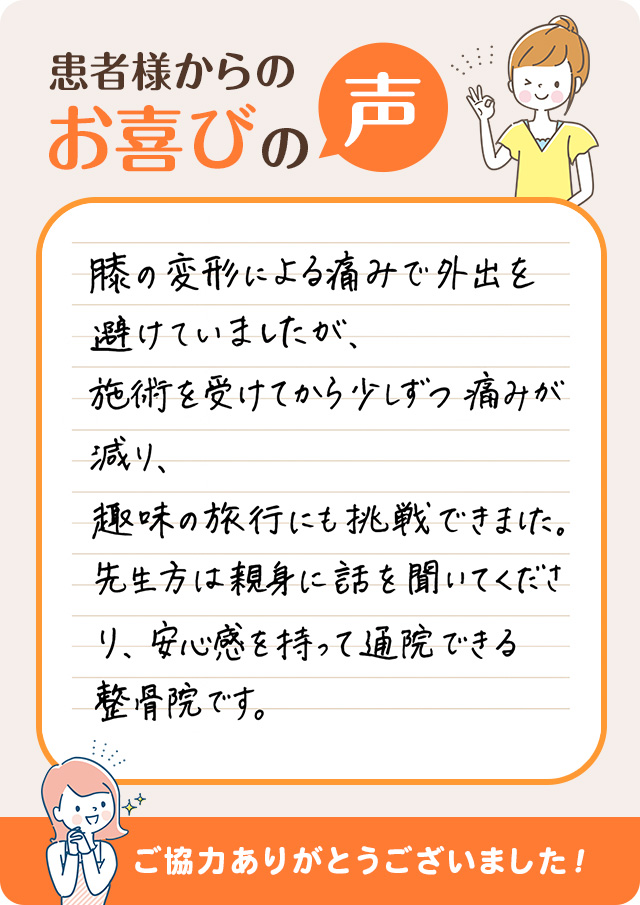 患者様からの
お喜びの声
膝の変形による痛みで外出を
避けていましたが、
施術を受けてから少しずつ痛みが
減り、
趣味の旅行にも挑戦できました。
先生方は親身に話を聞いてくださ
り、安心感を持って通院できる
整骨院です。
ご協力ありがとうございました!